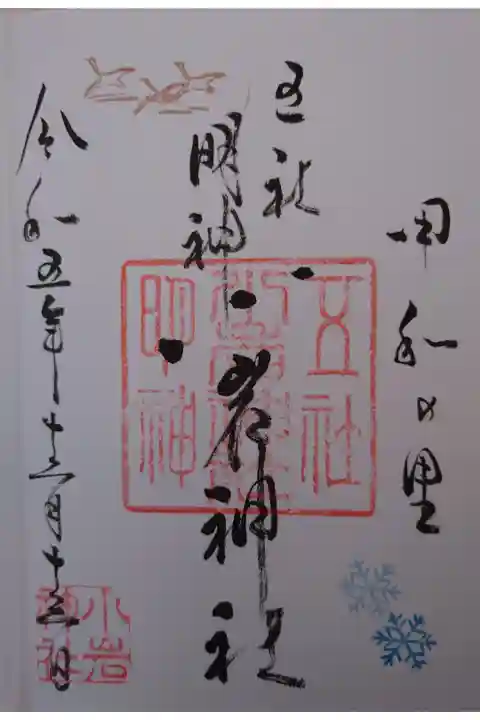 甲和の里
五社
明神
小岩神社
令和五年十二月十二日
五社
小岩神社
明神
小岩
神社